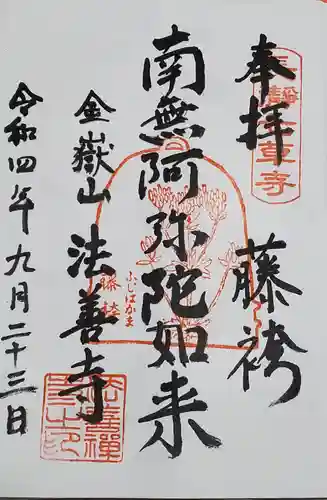 奉拝
藤袴
南無阿弥陀如来
金嶽山
法善寺
令和四年九月二十三日
藤袴
ふじばかま